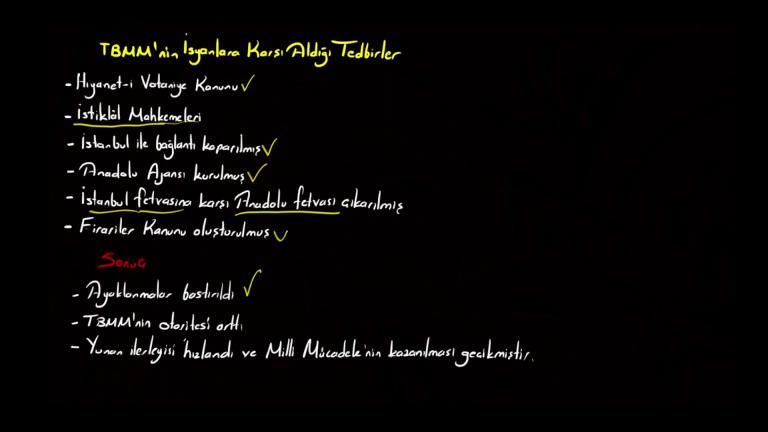 TBMM'nin İsyanlara Karşı Aldığı Tedbirler
- Hıyanet-i Vataniye Kanunu ✓
- İstiklâl Mahkemeleri
- İstanbul ile bağlantı koparılmış ✓
- Anadolu Ajansı kurulmuş ✓
- İstanbul fetvasına karşı Anadolu fetvası çıkarılmış
- Firariler Kanunu oluşturulmuş ✓
Sonuç
- Ayaklanmalar bastırıldı ✓
- TBMM'nin otoritesi arttı
- Yunan ilerleyişi hızlandı ve Milli Mücadele'nin kazanılması gecikmiştir.